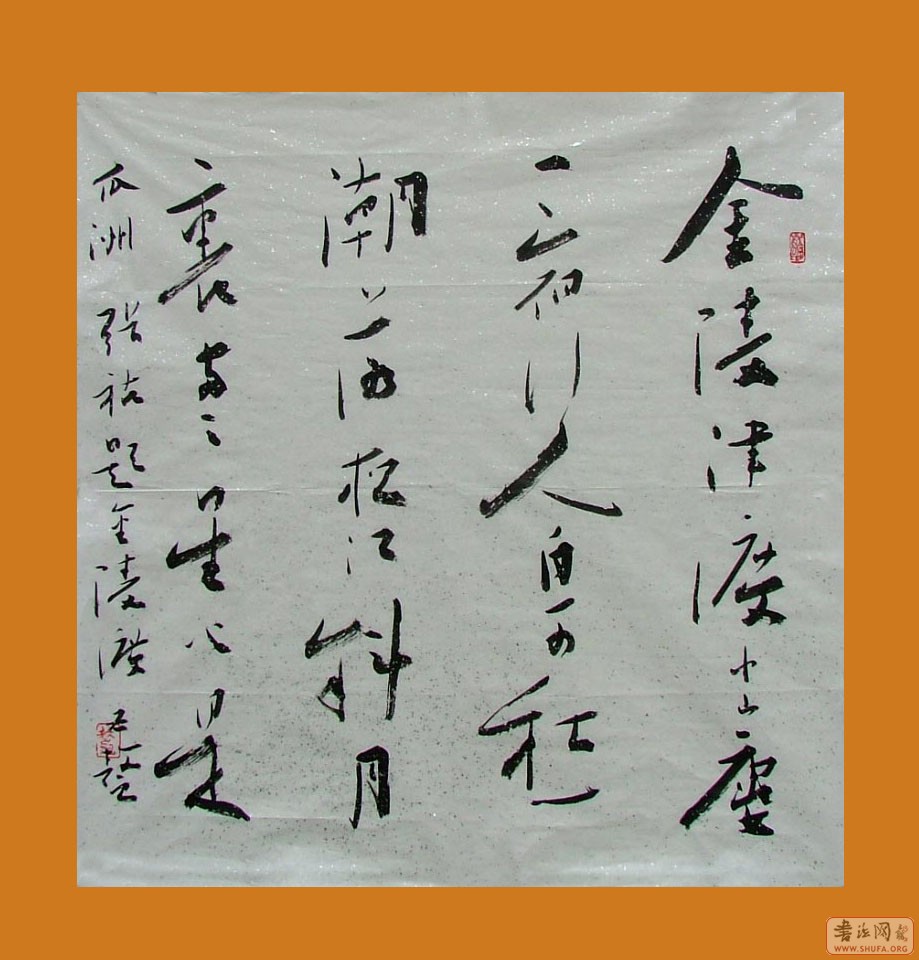 金陵津渡小山廔
一宿行人自可愁
潮落夜江斜月
裏兩三星火是
瓜洲 張祜題金陵渡
書法网
WWW.SHUFA.ORG